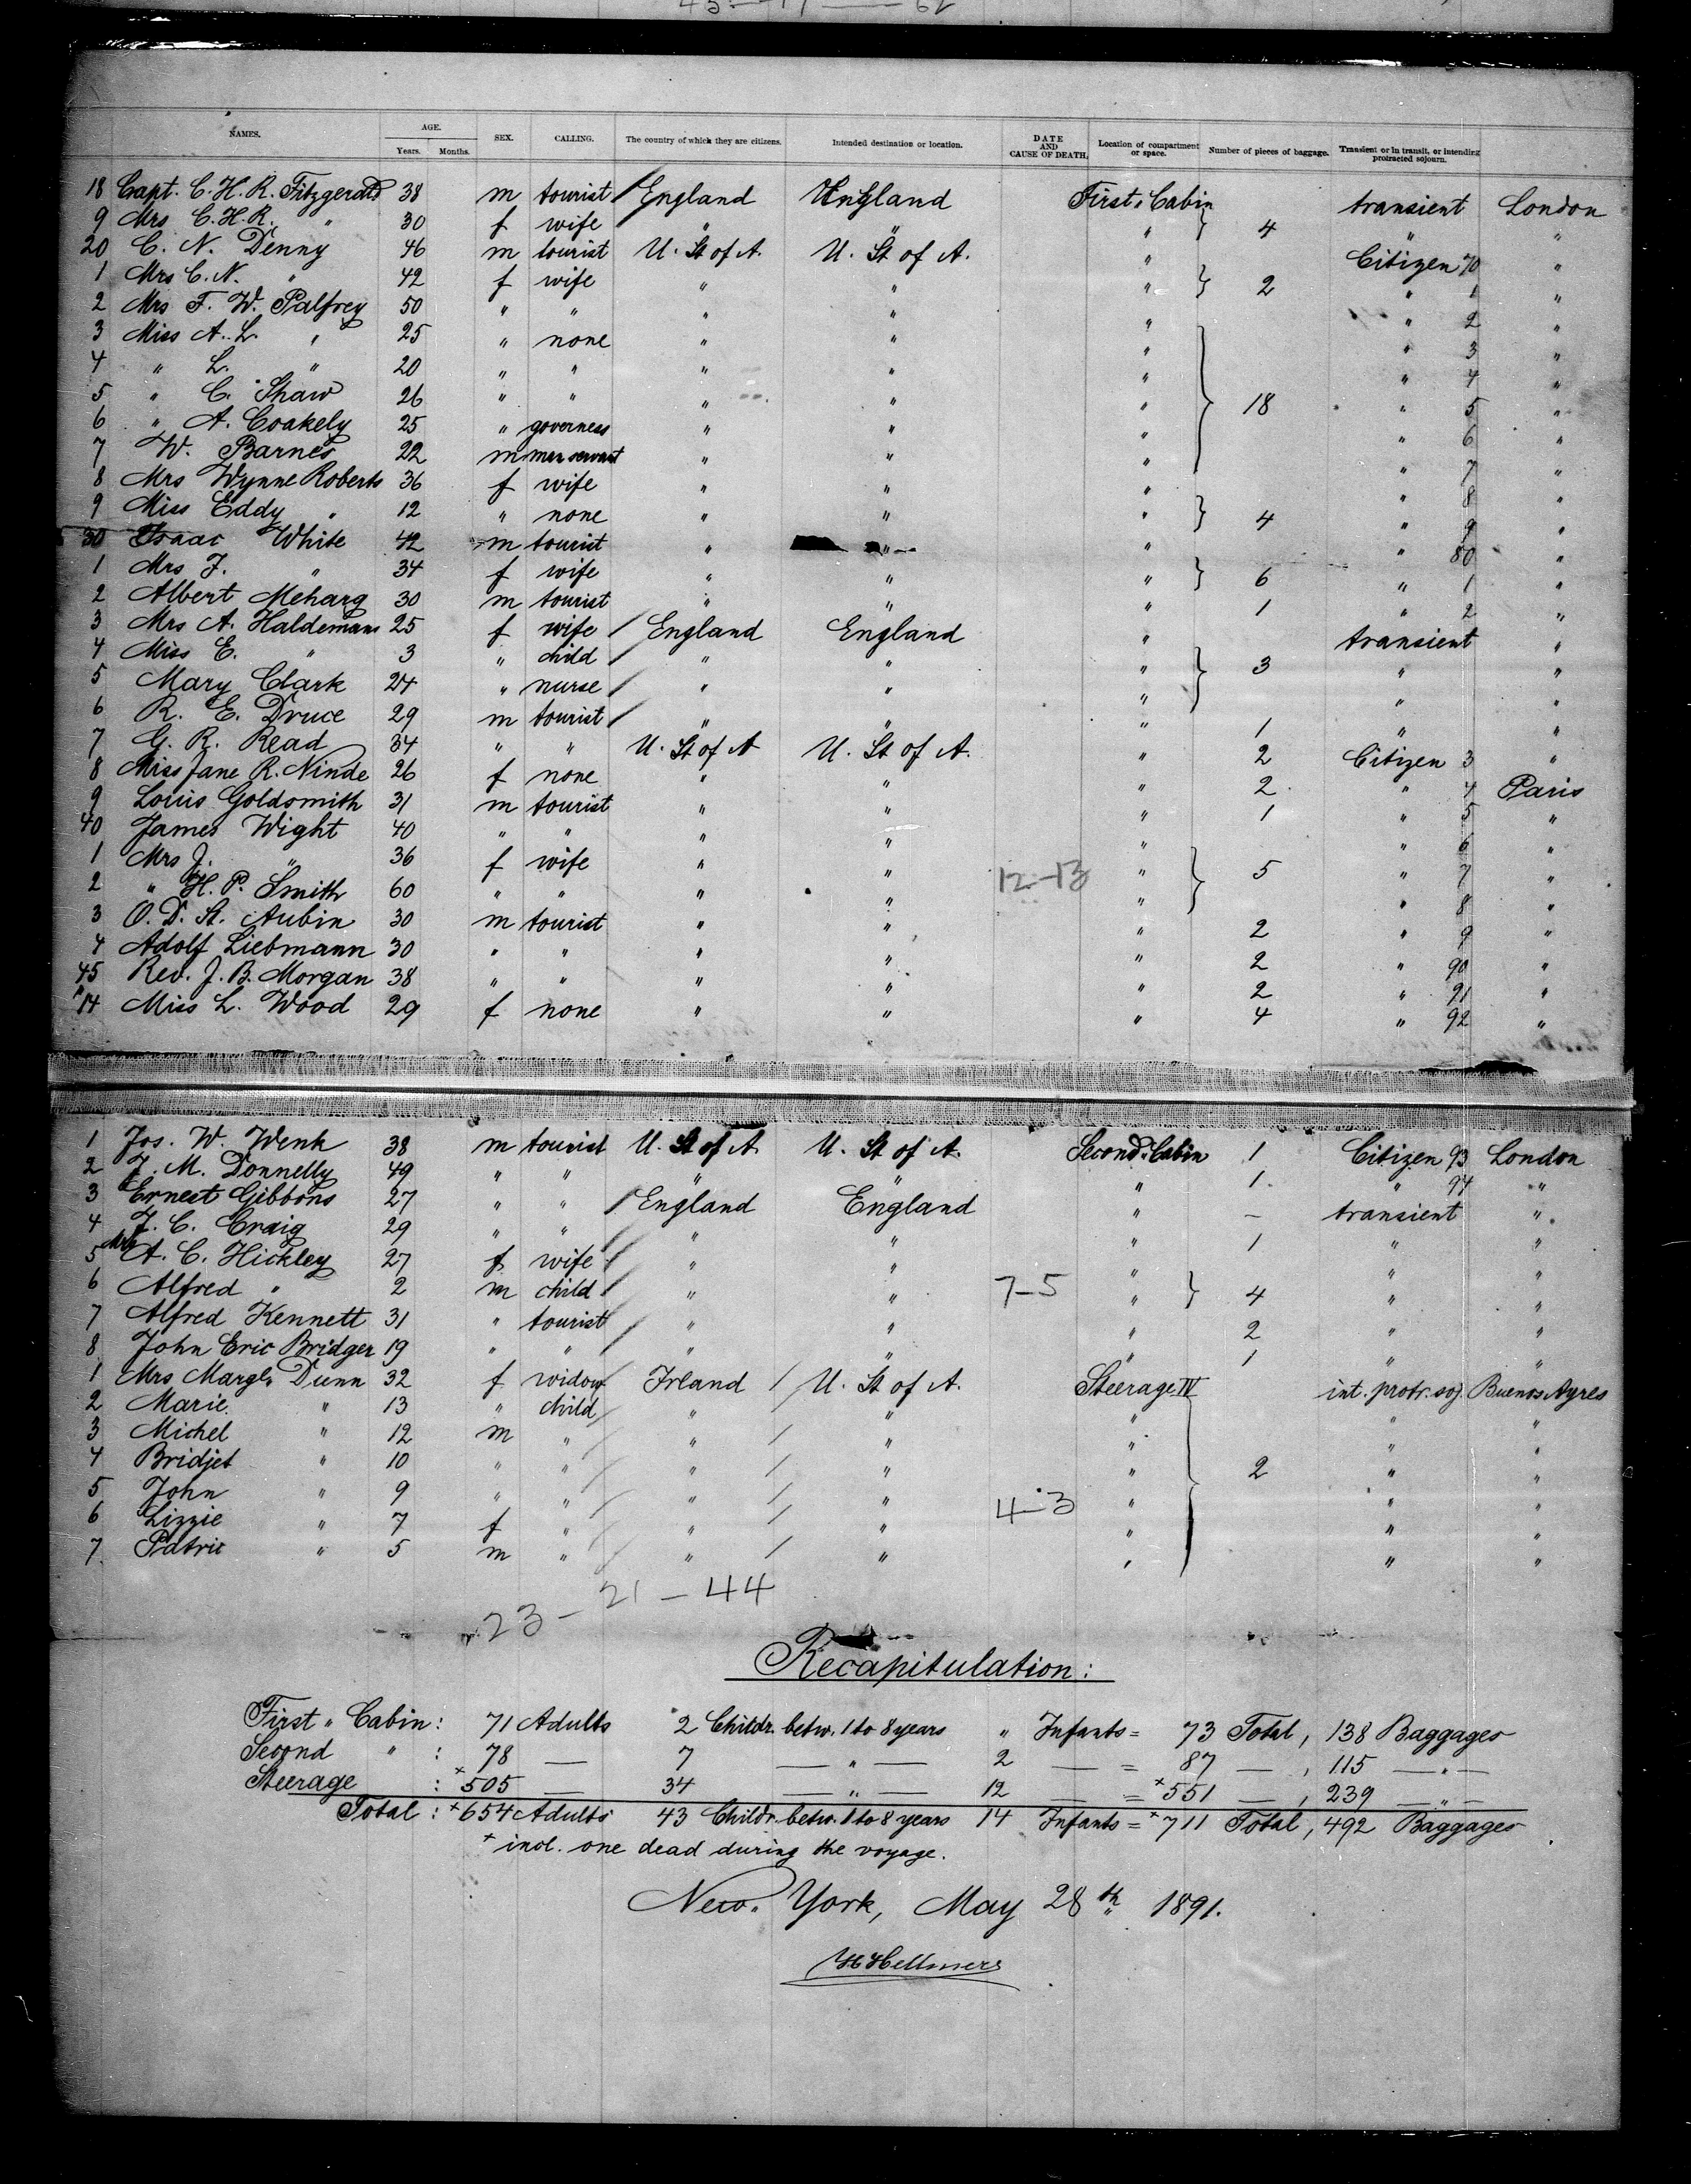 NAMES. AGE. Years. Months. SEX. CALLING. The country of which they are citizens. Intended destination or location. DATE AND CAUSE OF DEATH. Location of compartment or space. Number of pieces of baggage. Transient or in transit, or intending protracted sojourn.
18 Capt. C. H. R. Fitzgerald 38 m tourist England England First " Cabin transient London
9 Mrs C. H. R. " 30 f wife " " " } 4 " "
20 C. N. Denny 46 m tourist U. St of A. U. St of A. " Citizen 70 "
1 Mrs C. N. " 42 f wife " " " } 2 " 1 "
2 Mrs F. W. Palfrey 50 " " " " " " 2 "
3 Miss A. L. " 25 " none " " " " 3 "
4 " L. " 20 " " " " " " 4 "
5 " C. Shaw 26 " " " " " } 18 " 5 "
6 " A. Coakely 25 " governess " " " " 6 "
7 W. Barnes 22 m man servant " " " " 7 "
8 Mrs Wynne Roberts 36 f wife " " " " 8 "
9 Miss Eddy " 12 " none " " " } 4 " 9 "
30 Isaac White 42 m tourist " " " " 80 "
1 Mrs J. " 34 f wife " " " } 6 " 1 "
2 Albert Meharg 30 m tourist " " " 1 " 2 "
3 Mrs A. Haldemann 25 f wife England England " transient "
4 Miss E. " 3 " child " " " } 3 " "
5 Mary Clark 24 " nurse " " " " "
6 R. E. Druce 29 m tourist " " " 1 " "
7 G. R. Read 34 " " U. St of A U. St of A. " 2 Citizen 3 "
8 Miss Jane R. Ninde 26 f none " " " 2 " 4 Paris
9 Louis Goldsmith 31 m tourist " " " 1 " 5 "
40 James Wight 40 " " " " " " 6 "
1 Mrs J. " 36 f wife " " 12-13 " } 5 " 7 "
2 " H. P. Smith 60 " " " " " " 8 "
3 O. D. St. Aubin 30 m tourist " " " 2 " 9 "
4 Adolf Liebmann 30 " " " " " 2 " 90 "
45 Rev. J. B. Morgan 38 " " " " " 2 " 91 "
" 14 Miss L. Wood 29 f none " " " 4 " 92 "
1 Jos. W. Wenk 38 m tourist U. St of A. U. St of A. Second " Cabin 1 Citizen 93 London
2 J. M. Donnelly 49 " " " " " 1 " 94 "
3 Ernest Gibbons 27 " " England England " – transient "
4 J. C. Craig 29 " " " " " 1 " "
5 Mrs A. C. Hickley 27 f wife " " " " "
6 Alfred " 2 m child " " 7-5 " } 4 " "
7 Alfred Kennett 31 " tourist " " " 2 " "
8 John Eric Bridger 19 " " " " " 1 " "
1 Mrs Margt. Dunn 32 f widow Irland / U. St of A. Steerage IV int. protr. soj. Buenos Ayres
2 Marie " 13 " child " " " " "
3 Michel " 12 m " " / " " " "
4 Bridjet " 10 " " " / " " } 2 " "
5 John " 9 " " " / " 4-3 " " "
6 Lizzie " 7 f " " / " " " "
7. Patric " 5 m " " / " " " "
23 - 21 - 44
Recapitulation:
First " Cabin: 71 Adults 2 Childr. betw. 1 to 8 years " Infants = 73 Total, 138 Baggages
Second " : 78 — 7 — " — 2 — = 87 — , 115 — " —
Steerage : +505 — 34 — " — 12 — = +551 — , 239 — " —
Total: +654 Adults 43 Childr. betw. 1 to 8 years 14 Infants = +711 Total, 492 Baggages
+ incl. one dead during the voyage.
New " York, May 28th 1891.
H Hellmers